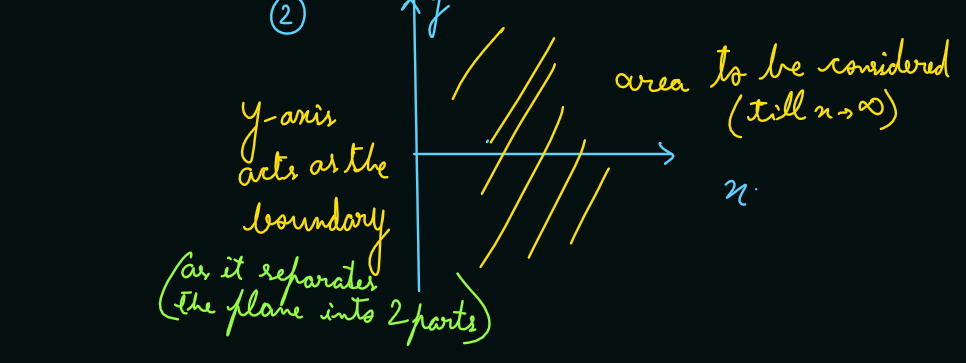 2
y
area to be considered
(till x→∞)
y-axis
acts as the
boundary
(as it separates
the plane into 2 parts)
x